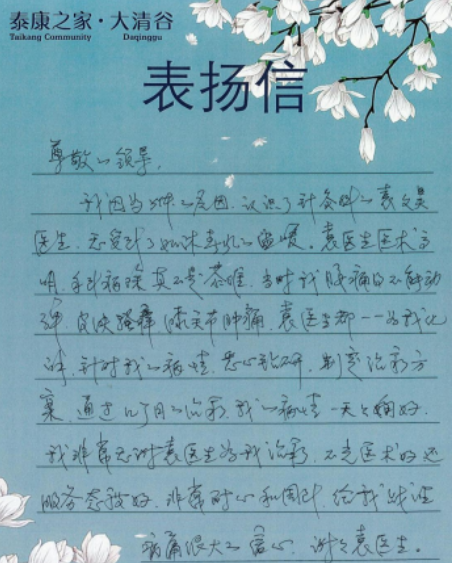 泰康之家·大清谷
Taikang Community Daqinggu
表扬信
尊敬的领导,
我因为身体的原因,认识了针灸科的袁文昊
医生,感受到了如沐春风的温暖。袁医生医术高
明,手到病除莫不是恭维,当时我腿痛的不能动
弹,皮肤瘙痒 膝关节肿痛,袁医生都一一为我化
解,针对我的病情,悉心钻研,制定治疗方
案,通过几个月的治疗,我的病情一天天调好,
我非常感谢袁医生为我治疗,不光医术好还
服务态度好,非常耐心和周到,给我战胜
病痛很大的信心,谢谢袁医生。